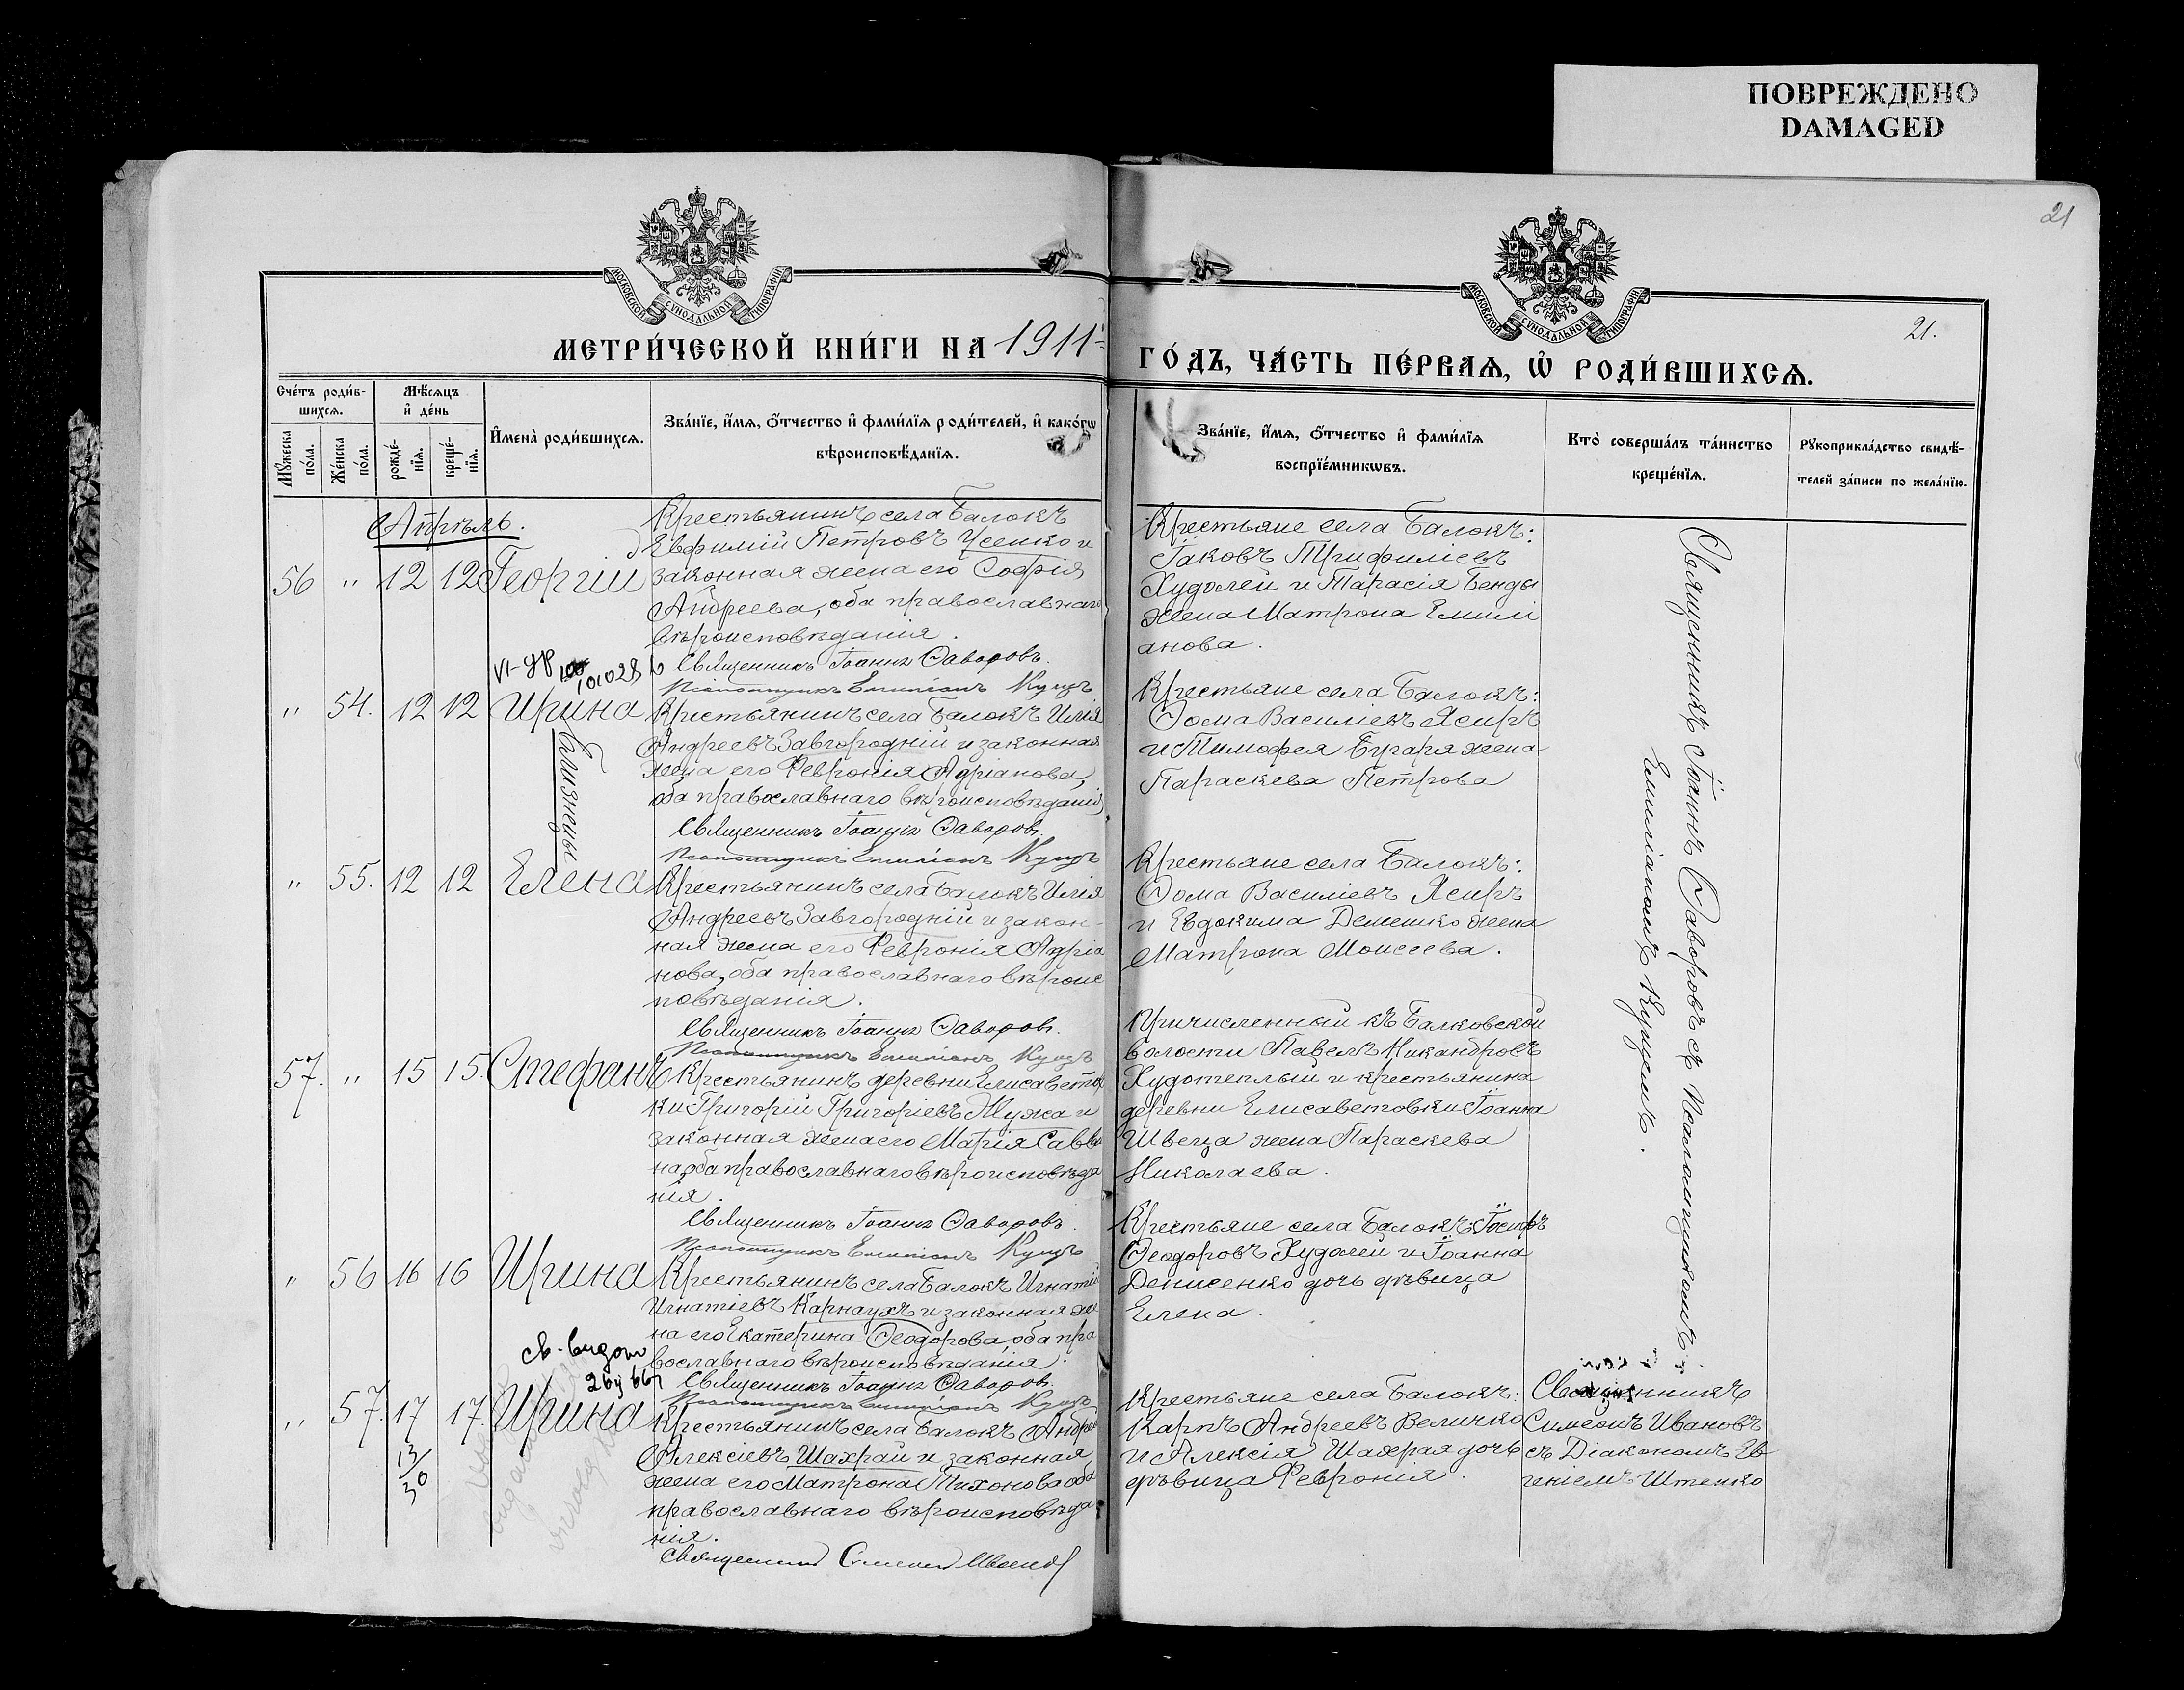 ПОВРЕЖДЕНО
DAMAGED
21
МОСКОВСКОЙ СѴНОДАЛЬНОЙ ТИПОГРАФІИ
МОСКОВСКОЙ СѴНОДАЛЬНОЙ ТИПОГРАФІИ
МЕТРИ́ЧЕСКОЙ КНИ́ГИ НА 1911
ГО́ДЪ, ЧА́СТЬ ПЕ́РВАѦ, Ѡ РОДИ́ВШИХСѦ.
21.
Сче́тъ роди́в-
шихсѧ.
Мꙋ́жеска по́ла.
Же́нска по́ла.
Мѣ́сѧцъ
и҆ де́нь
рожде́-нїѧ.
креще́-нїѧ.
И҆мена̀ роди́вшихсѧ.
Зва́нїе, и҆́мѧ, ѻ҆́тчество и҆ фами́лїѧ роди́телей, и҆ како́гѡ
вѣроисповѣ́данїѧ.
Зва́нїе, и҆́мѧ, ѻ҆́тчество и҆ фами́лїѧ
воспрїе́мникѡвъ.
Кто̀ соверша́лъ та́инство
креще́нїѧ.
Рꙋкоприкла́дство свидѣ́-
телей за́писи по жела́нїю.
Апрѣль.
56 " 12 12 Георгій
Крестьянинъ села Балокъ
Евфимій Петровъ Усенко и
законная жена его Софія
Андреева, оба православнаго
вѣроисповѣданія.
Священникъ Іоаннъ Ѳаворовъ.
Псаломщикъ Емиліанъ Куцъ
Крестьяне села Балокъ:
Іаковъ Трифиліевъ
Худолей и Тарасія Бенды
жена Матрона Емилі
анова.
" 54. 12 12 Ирина
Близнецы
Крестьянинъ села Балокъ Илія
Андреевъ Завгородній и законная
жена его Февронія Адріанова,
оба православнаго вѣроисповѣданія
Священникъ Іоаннъ Ѳаворовъ.
Псаломщикъ Емиліанъ Куцъ
Крестьяне села Балокъ:
Ѳома Василіевъ Ясиръ
и Тимофея Бугаря жена
Параскева Петрова
" 55. 12 12 Елена
Крестьянинъ села Балокъ Илія
Андреевъ Завгородній и закон-
ная жена его Февронія Адріа
нова, оба православнаго вѣроис
повѣданія.
Священникъ Іоаннъ Ѳаворовъ.
Псаломщикъ Емиліанъ Куцъ
Крестьяне села Балокъ:
Ѳома Василіевъ Ясиръ
и Евдокима Демешко жена
Матрона Моисеева.
57. " 15 15. Стефанъ
Крестьянинъ деревни Елисаветов
ки Григорій Григоріевъ Жужа и
законная жена его Марія Савви
на, оба православнаго вѣроисповѣда
нія.
Священникъ Іоаннъ Ѳаворовъ.
Псаломщикъ Емиліанъ Куцъ
Причисленный къ Балковской
волости Павелъ Никандровъ
Худотеплый и крестьянина
деревни Елисаветовки Іоанна
Швеца жена Параскева
Николаева.
" 56 16 16 Ирина
Крестьянинъ села Балокъ Игнатій
Игнатіевъ Карнаухъ и законная же
на его Екатерина Ѳеодорова, оба пра
вославнаго вѣроисповѣданія.
Священникъ Іоаннъ Ѳаворовъ.
Псаломщикъ Емиліанъ Куцъ
Крестьяне села Балокъ: Іосифъ
Ѳеодоровъ Худолей и Іоанна
Денисенко дочь дѣвица
Елена.
Священникъ Іоаннъ Ѳаворовъ съ Псаломщикомъ
Емиліаномъ Куцемъ.
" 57. 17 17. Ирина
13/30
Крестьянинъ села Балокъ Андрей
Алексіевъ Шахрай и законная
жена его Матрона Тихонова оба
православнаго вѣроисповѣда
нія.
Священникъ Симеонъ Ивановъ
Крестьяне села Балокъ:
Карпъ Андреевъ Величко
и Алексія Шахрая дочь
дѣвица Февронія.
Священникъ
Симеонъ Ивановъ
съ Діакономъ Ев
геніемъ Штенко